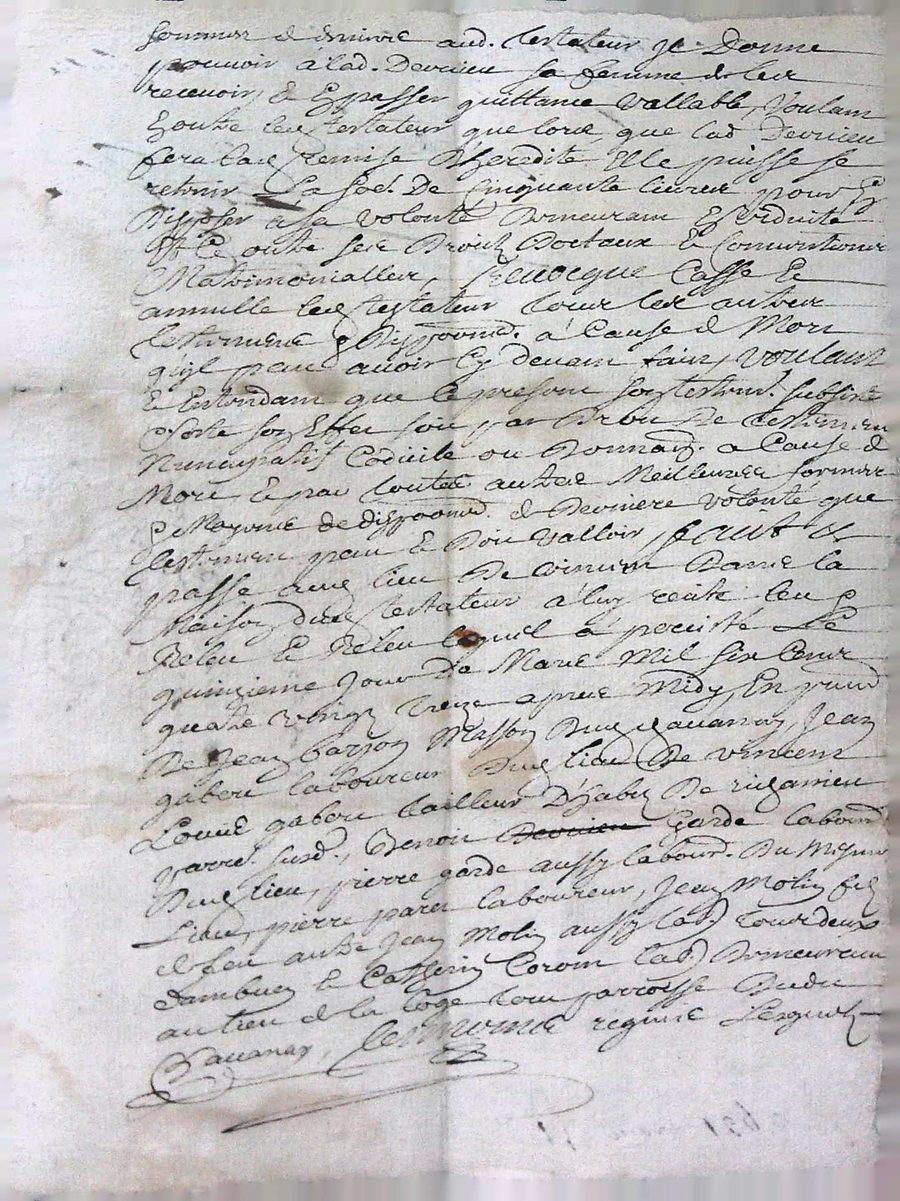 sommes & dernire aud. testateur Je Donne
pouvoir à lad. Devrieu sa femme de les
recevoir, & Epasser quittance vallable, Voulant
Eoutre led testateur que lors, que lad Devrieu
fera lad Remise D'heredité Elle puisse se
retenir La Sod. De Cinquante livres pour Ep
Disposer a sa volonté Demeurant
Et Ce outre ses Droitz Doctaux & Conventions
Matrimonialles, Revocque Casse &
annulle led testateur tous les autres
testaments & Disposond. à Cause de Mort
quil peut avoir Cy devant faict, voulant
& Entendant que Ce present son testamt. subsiste
& sorte son Effet soit par Droit De testament
Nuncupatif Codicile ou Donnaon. a Cause de
Mort & par toutes autres Meilleures formes
& Moyens de disposond. & Derniere volonté que
testament peut & Doit valloir, faict &
passé aud lieu De vincent Dans la
Maison dud testateur à luy recité leu &
Releu & Releu lequel à percisté Le
quinzieme Jour De Mars Mil six Cens
quatre vingt treze apres Midy, En prnce
De Jean barjon Masson Dud Chavanay, Jean
gaberi laboureur Dud lieu De vincent
Louis gaberi tailleur D'habitz De
parre. susd., Benoit Devrieu Garde labour
Dud lieu, pierre garde aussy labour. Du Mesme
Lieu, pierre paret laboureur, Jean Molin filz
de feu autre Jean Molin aussy lab. tous deux
Dambuen & Catherin Corom lab. Demeurant
au lieu de la loge tous parroisse Dudit
Chavanay, tesmoins requis Lesquelz